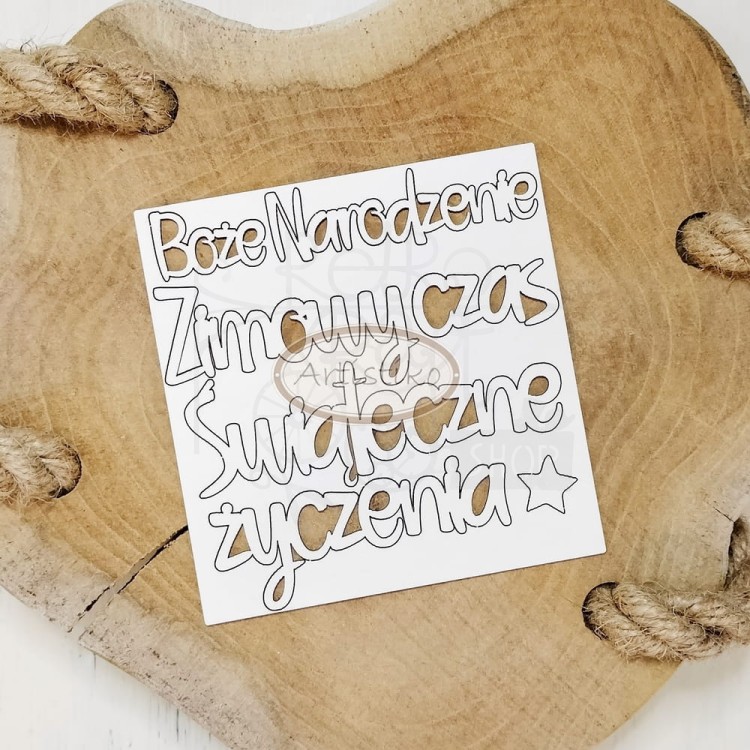 Boże Narodzenie
Zimowy czas
Artistiko
Świąteczne
SHOP
życzenia